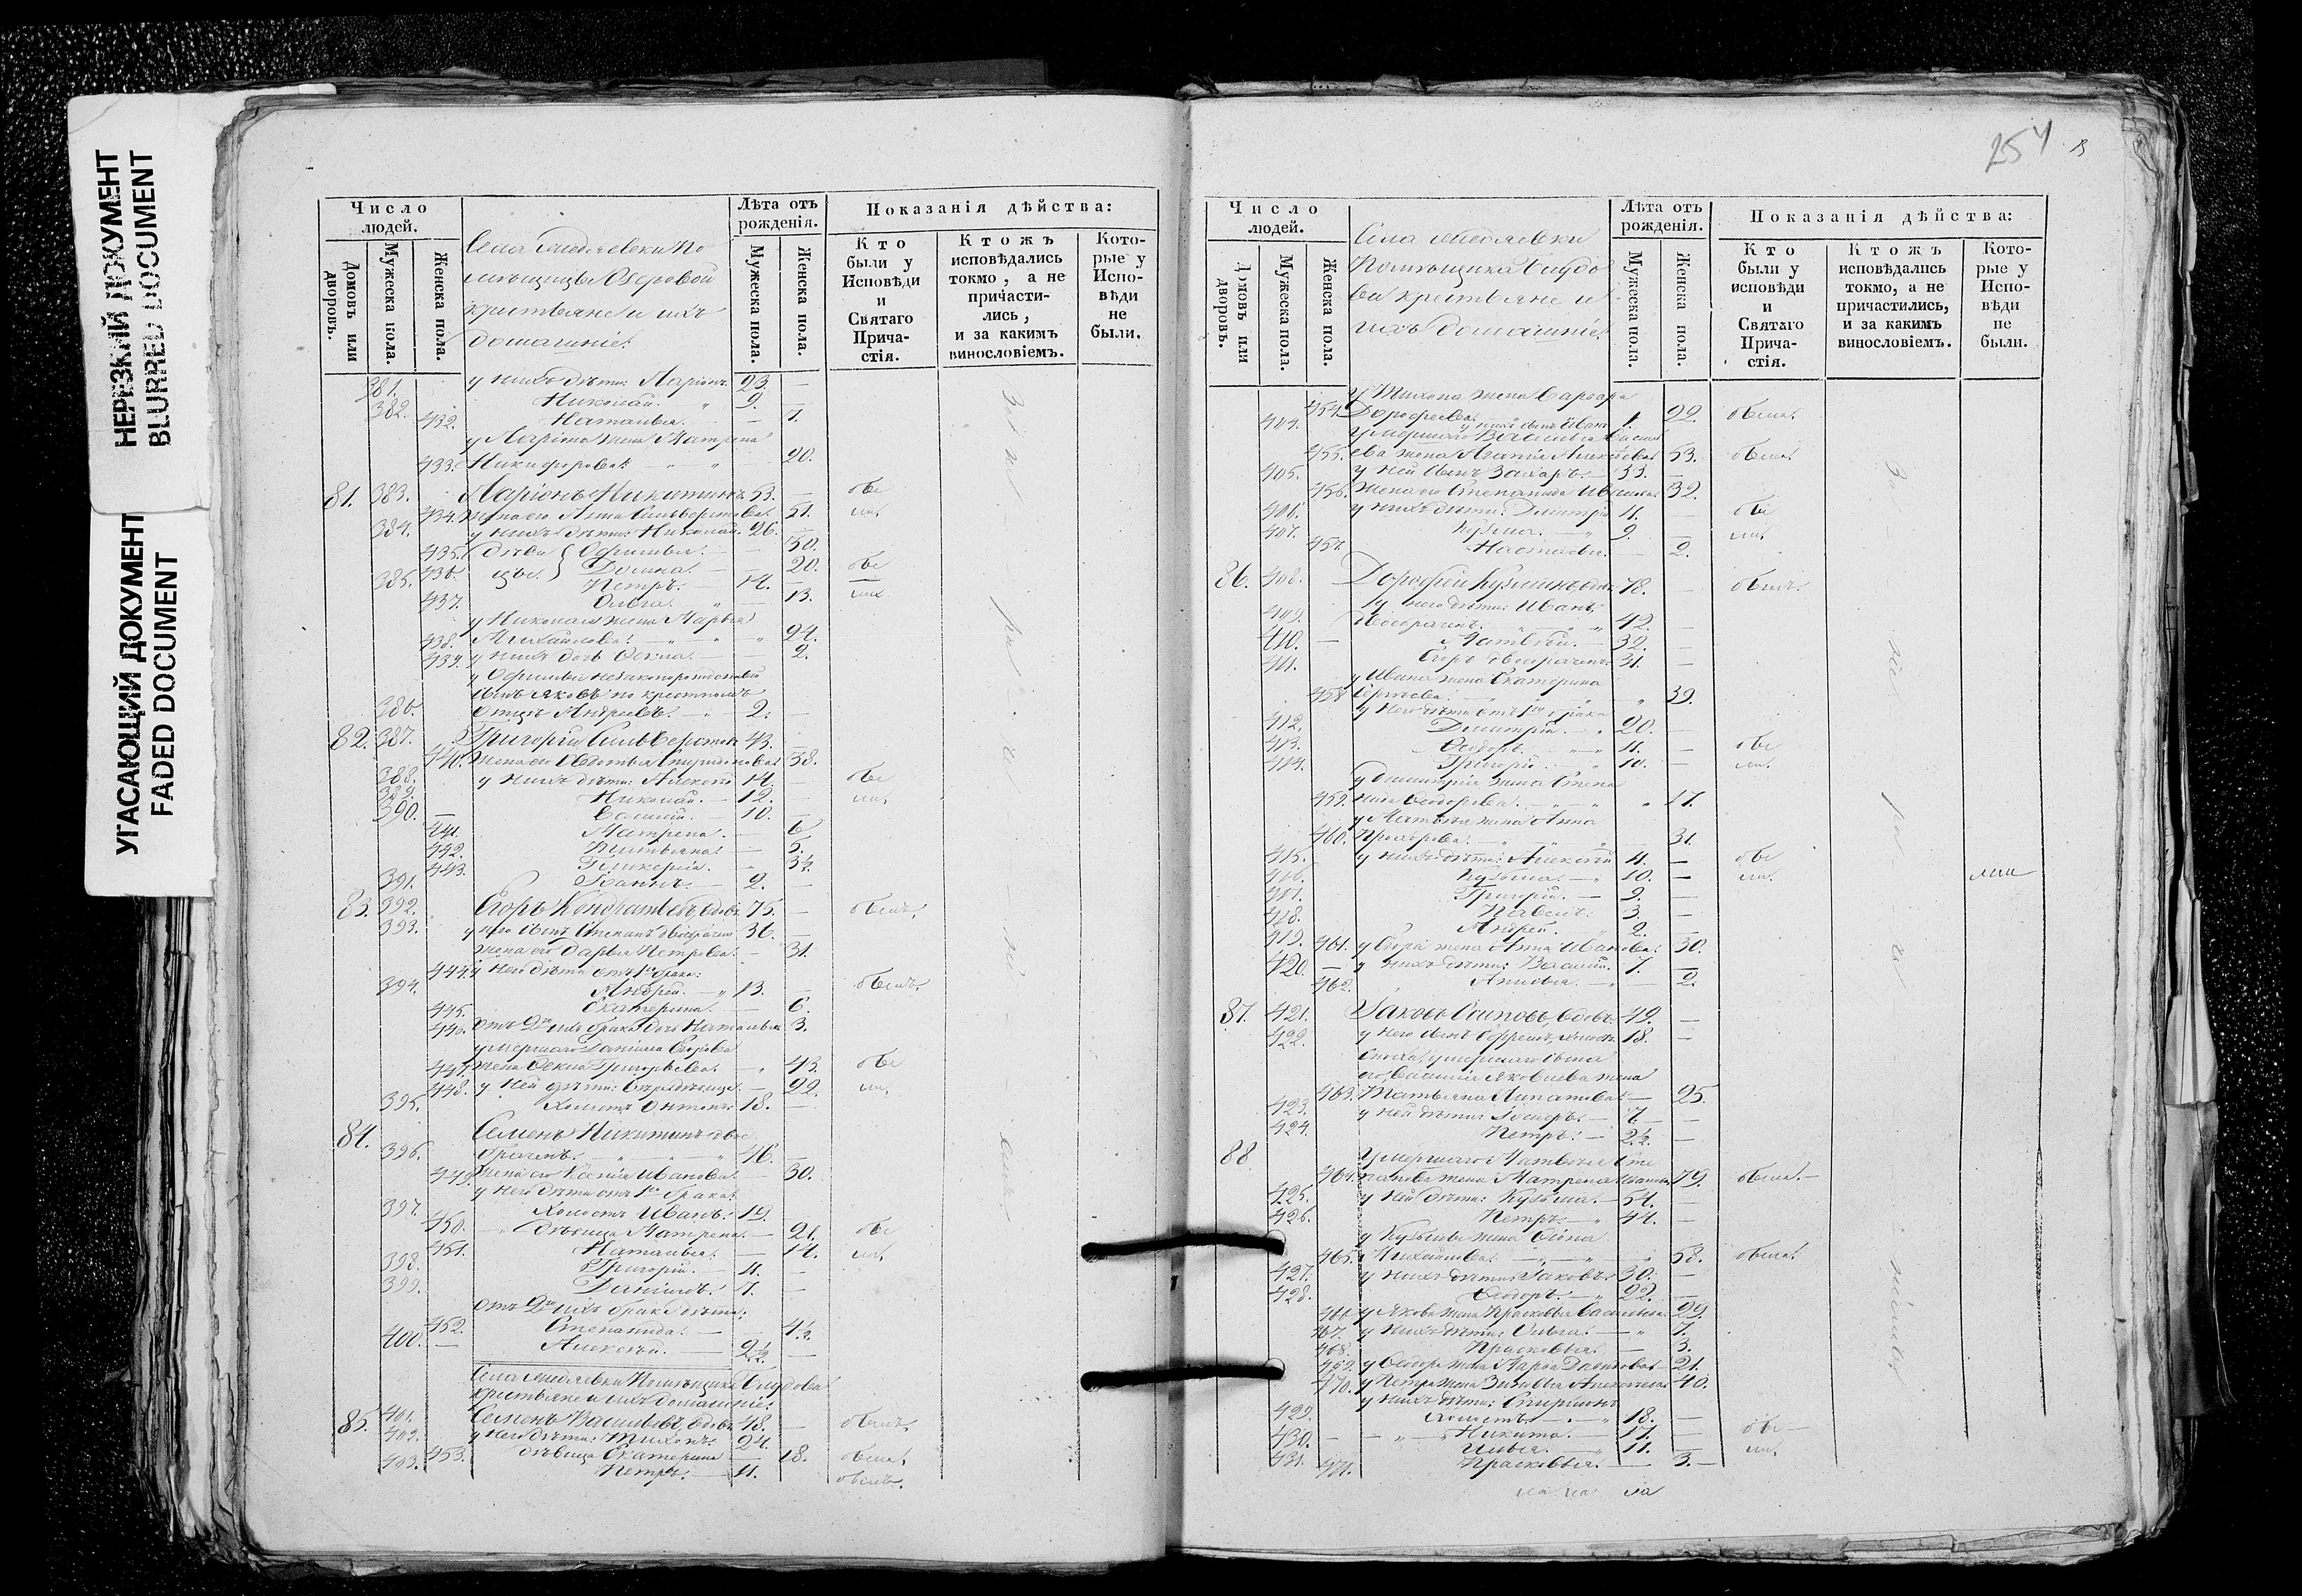 НЕРЕЗКИЙ ДОКУМЕНТ
BLURRED DOCUMENT
УГАСАЮЩИЙ ДОКУМЕНТ
FADED DOCUMENT
Число людей.
Домовъ или дворовъ.
Мужеска пола.
Женска пола.
Села по
мѣщицы Озеровой
крестьяне и ихъ
домашніе.
Лѣта отъ рожденія.
Мужеска пола.
Женска пола.
Показанія дѣйства:
Кто были у Исповѣди и Святаго Прича-стія.
Ктожъ исповѣдались токмо, а не причасти-лись, и за какимъ винословіемъ.
Кото-рые у Испо-вѣди не были.
381. у нихъ дѣти: Ларіонъ. 23. —
382. Николай. 9. —
432. Наталья. — 7.
у Ларіона жена Матрена
433. Никифорова. 20.
81. 383. Ларіонъ Никитинъ 53. — бы
434. жена его Анна Сильверстова. 51. ли.
384. у нихъ дѣти: Николай. 26. —
435. дѣви Офимья. — 30.
436. цы. Домна. — 20. бы
385. Петръ. 14. — ли.
437. Ольга. — 13.
у Николая жена Марья
438. Михайлова. 24.
439. у нихъ дочь Фекла. — 2.
у Офимьи незаконорожденный
сынъ Яковъ по крестномъ
386. отцѣ Андреевъ. 2. —
82. 387. Григорій Сильверстовъ 43. —
440. жена его Авдотья Спиридонова. 38.
388. у нихъ дѣти: Алексѣй 14. — бы
389. Николай. 12. — ли.
390. Василій. 10. —
441. Матрена. — 6
442. Татьяна. — 5.
443. Гликерія. — 3½
391. Іоаннъ. 2. —
83. 392. Егоръ Кондратьевъ, вдовъ. 75. — былъ.
393. у него сынъ Степанъ двоебрачный 36. —
жена его Дарья Петрова. — 31.
444. у него дѣти отъ 1го брака:
394. Андрей. 13. — былъ.
445. Екатерина. — 6.
446. отъ 2го ихъ брака дочь Наталья 3.
умершаго Даніила Егорова
447. жена Фекла Григорьева. 43. бы
448. у ней дѣти: Вѣра дѣвица. — 22. ли.
395. холостъ Антонъ. 18. —
84. Семенъ Никитинъ двое
396. браченъ. 46. —
449. жена его Ксенія Иванова. — 30.
у него дѣти отъ 1го брака:
397. холостъ Иванъ. 19.
450. дѣвица Матрена. — 21. бы
451. Наталья. — 14. ли.
398. Григорій. 11. —
399. Даніилъ. 7. —
отъ 2го ихъ брака дѣти:
452. Степанида. — 4½.
400. Алексѣй. 2½. —
Села помѣщика
крестьяне и ихъ домашніе.
85. 401. Семенъ Васильевъ, вдовъ. 48. — былъ.
402. у него дѣти: Тихонъ. 24.
453. дѣвица Екатерина — 18. была.
403. Петръ. 11. былъ.
254
Число людей.
Домовъ или дворовъ.
Мужеска пола.
Женска пола.
Села
Помѣщика
ва крестьяне и
ихъ домашніе.
Лѣта отъ рожденія.
Мужеска пола.
Женска пола.
Показанія дѣйства:
Кто были у исповѣди и Святаго Прича-стія.
Ктожъ исповѣдались токмо, а не причастились, и за какимъ винословіемъ.
Кото-рые у Испо-вѣди не были.
у Тихона жена Варвара
454. Дорофеева. 22. была.
404. у нихъ сынъ Иванъ 1.
умершаго Василья Василь
455. ева жена Агапія Алексѣева. 53. была.
405. у ней сынъ Захаръ. 33. —
456. жена его Степанида Иванова. 32.
406. у нихъ дѣти: Димитрій 11. — бы
407. Кузьма. 9. — ли.
457. Настасья. — 2.
86. 408. Дорофей Кузминъ, вдовъ. 78. — былъ.
у него дѣти: Иванъ
409. двоебраченъ. 42. —
410. Матвѣй. 32. —
411. Егоръ двоебраченъ. 31. —
у Ивана жена Екатерина
458. Сергѣева. 39.
у него дѣти отъ 1го брака
412. Димитрій. 20. —
413. Ѳеодоръ. 11. — бы
414. Григорій. 10. — ли.
у Димитрія жена Степа
459. нида Ѳеодорова. 17.
у Матвѣя жена Анна
460. Прохорова. 31.
415. у нихъ дѣти: Алексѣй 11. — бы
416. Кузьма. 10. — ли.
417. Григорій. 9. —
418. Павелъ. 3. —
419. Андрей. 2. —
461. у Егора жена Анна Иванова. 30.
420. у нихъ дѣти: Василій. 7. —
462. — 2.
87. 421. Іаковъ Осиповъ, вдовъ. 49. —
422. у него сынъ Ефремъ, холостъ. 18. —
умершаго сына
его, Василія Яковлева жена
463. Татьяна 25.
423. у ней дѣти: 7 —
424. Петръ. 2½. —
88 Умершаго Матвѣя Сте
464. панова жена Матрена Иванова 79. была.
425. у ней дѣти: Кузьма. 54. —
426. Петръ. 44. —
у Кузьмы жена
465. Михайлова. 58. была.
427. у нихъ дѣти: Іаковъ. 30. —
428. Ѳеодоръ. 22. —
466. у Якова жена Прасковья Васильева. 29.
467. у нихъ дѣти: Ольга. 7.
468. Прасковья. — 3.
469. у Ѳеодора жена Марѳа 21.
470. у Петра жена Зиновья Алексѣева 40.
у нихъ дѣти: Спиридонъ
429. холостъ. 18. —
430. Никита. 17. — бы
431. Илья. 11. — ли.
471. Прасковья. — 3.